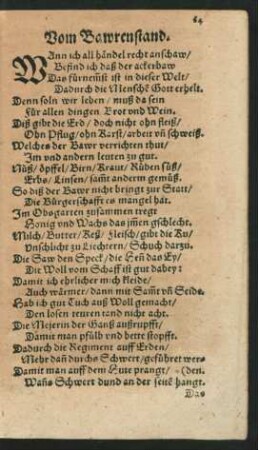 64
Vom Bawrenstand.
WAnn ich all händel recht anschaw/
Befind ich daß der ackerbaw
Das fürnemst ist in dieser Welt/
Dadurch die Menschē Gott erhelt.
Denn soln wir leben / muß da sein
Für allen dingen Brot und Wein.
Diß gibt die Erd / doch nicht ohn fleiß/
Ohn Pflug / ohn Karst / arbeit vñ schweiß.
Welches der Bawr verrichten thut/
Im und andern leuten zu gut.
Nüß/ öpffel/ Birn/ Kraut/ Rüben süß/
Erbs/ Linsen/ samt anderm gemüß.
So diß der Bawr nicht bringt zur Statt/
Die Bürgerschafft es mangel hat.
Im Obsgarten zusammen tregt
Honig und Wachs das jmen gschlecht.
Milch/ Butter/ Keß/ Fleisch/ gibt die Ku/
Vnschlicht zu Liechtern/ Schuch darzu.
Die Saw den Speck/ die Heñ das Ey/
Die Woll vom Schaff ist gut dabey:
Damit ich ehrlicher mich kleide/
Auch wärmer/ dann mit Samt vñ Seide.
Hab ich gut Tuch auß Woll gemacht/
Den losen teuren tand nicht acht.
Die Meierin der Ganß außrupfft/
Damit man pfülb und bette stopfft.
Dadurch die Regiment auff Erden/
Mehr dañ durchs Schwert/ geführet wer-
Damit man auff dem Hute prangt/ (den.
Wañs Schwert dund an der seitē hangt.
Das